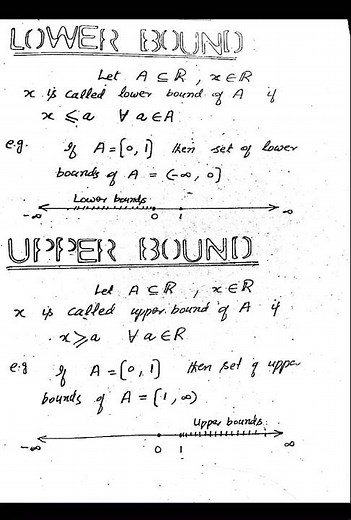 LOWER BOUND
Let A ⊆ ℝ , x ∈ ℝ
x is called lower bound of A if
x ⩽ a ∀ a ∈ A
e.g. If A = [0, 1] then set of lower
bounds of A = (-∞, 0]
Lower bounds
-∞ 0 1 ∞
UPPER BOUND
Let A ⊆ ℝ , x ∈ ℝ
x is called upper bound of A if
x ⩾ a ∀ a ∈ R
e.g If A = [0, 1] then set of upper
bounds of A = [1, ∞)
Upper bounds
-∞ 0 1 ∞